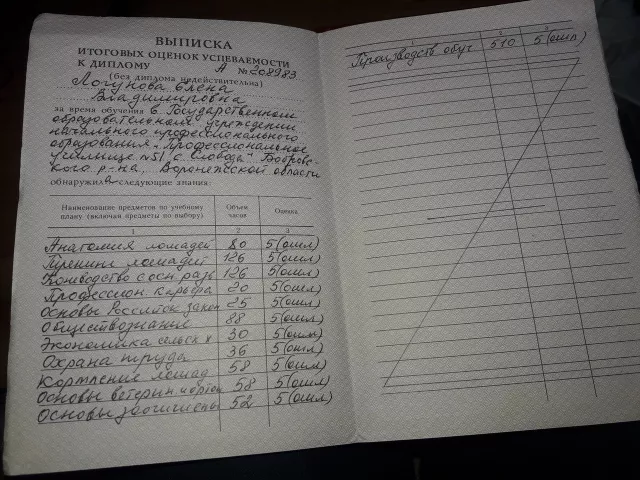 ВЫПИСКА
ИТОГОВЫХ ОЦЕНОК УСПЕВАЕМОСТИ
К ДИПЛОМУ А № 208983
(без диплома недействительна)
Логунова Елена
Владимировна
за время обучения в Государственном
образовательном учреждении
начального профессионального
образования "Профессиональное
училище №51 с. Слобода" Бобровс-
кого р-на, Воронежской области
обнаружила следующие знания:
Наименование предметов по учебному плану (включая предметы по выбору) Объем часов Оценка
1 2 3
Анатомия лошадей 80 5(отл)
Тренинг лошадей 126 5(отл)
Коневодство с осн. разв 126 5(отл)
Профессион. карьера 20 5(отл)
Основы Российск. закон 25 5(отл)
Обществознание 88 5(отл)
Экономика сельск х 30 5(отл)
Охрана труда 36 5(отл)
Кормление лошад 58 5(отл)
Основы ветерин 58 5(отл)
Основы 52 5(отл)
1 2 3
Производств обуч 510 5(отл)